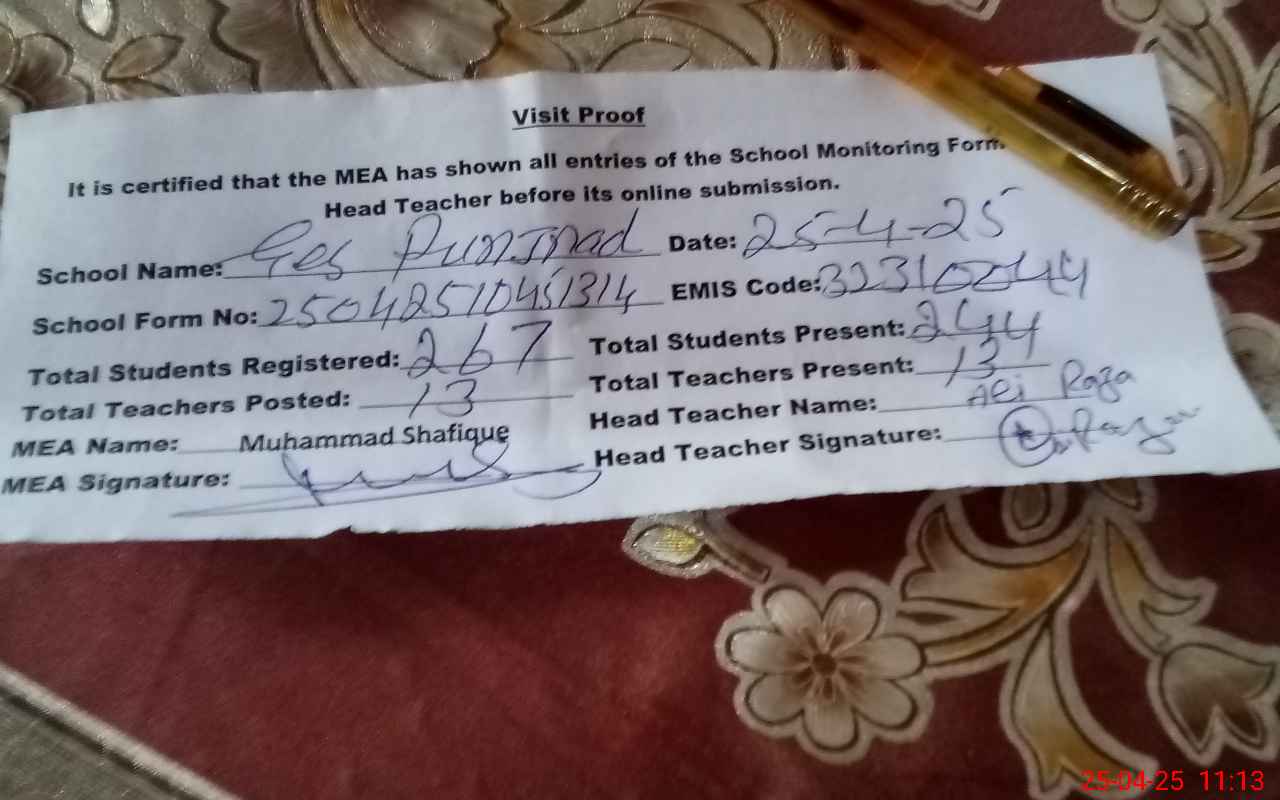 Visit Proof
It is certified that the MEA has shown all entries of the School Monitoring Form
Head Teacher before its online submission.
School Name: Ges Punjnad Date: 25-4-25
School Form No: 25042510451314 EMIS Code: 32310044
Total Students Registered: 267 Total Students Present: 244
Total Teachers Posted: 13 Total Teachers Present: 13
MEA Name: Muhammad Shafique Head Teacher Name: Ali Raza
MEA Signature: Head Teacher Signature: Raza
25-04-25 11:13